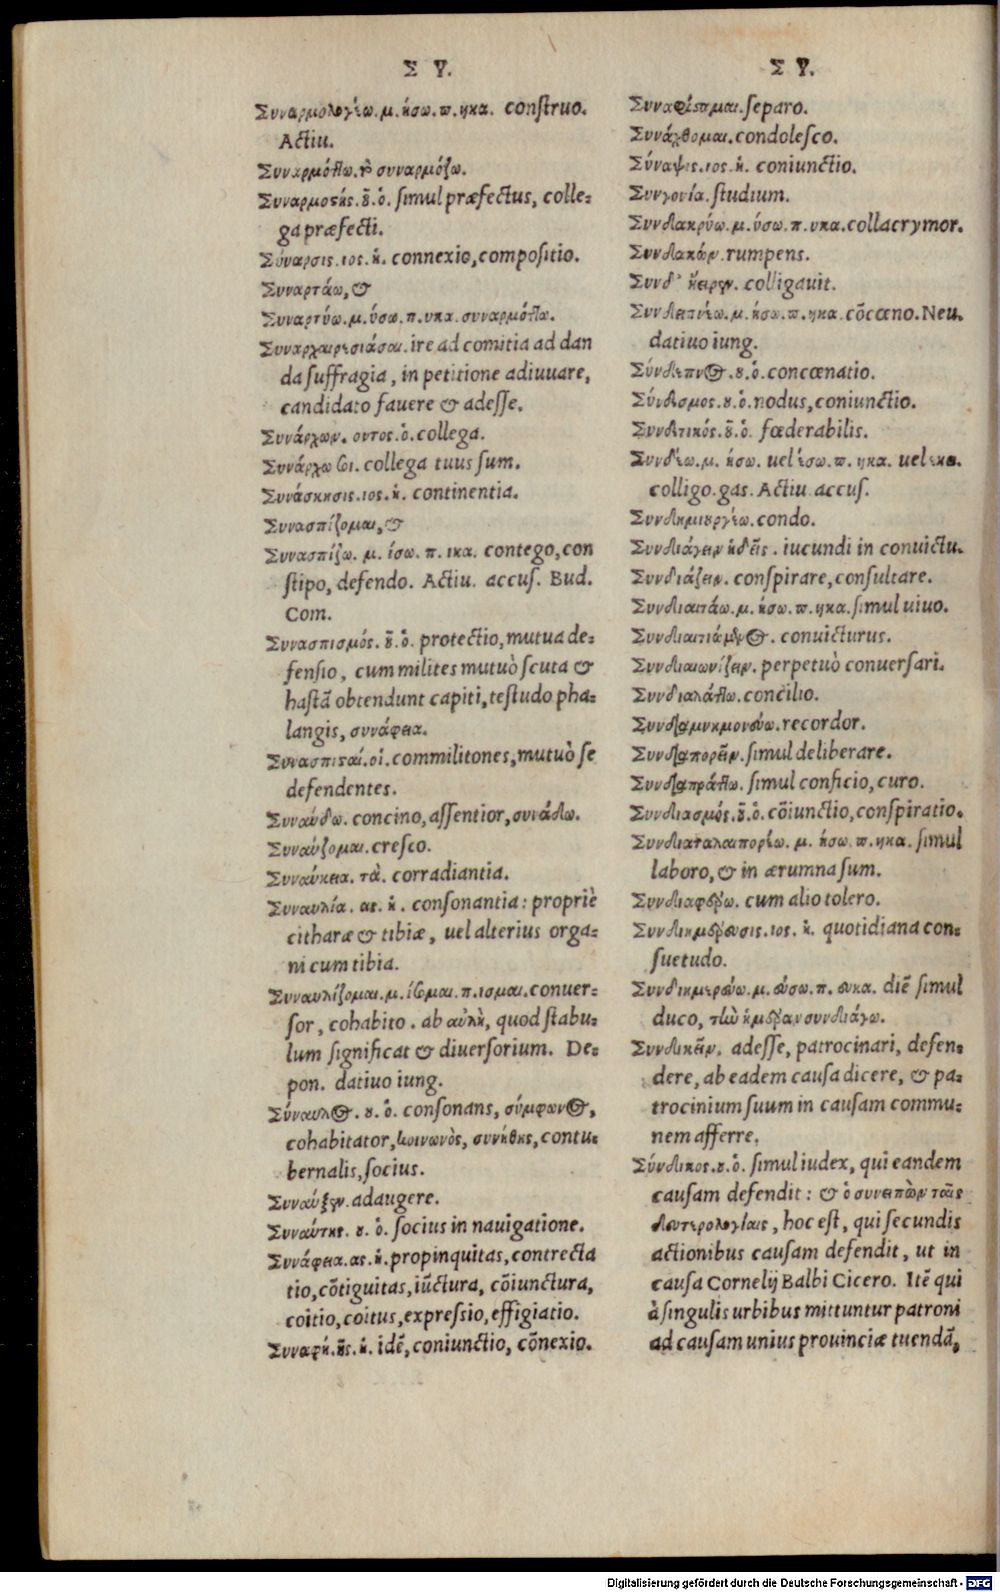 Σ Υ.
Συναρμολογέω.μ.ήσω.π.ηκα. conſtruo.
Actiu.
Συναρμόττω.καὶ συναρμόζω.
Συναρμοςής.οῦ.ὁ. ſimul præfectus, colle-
ga præfecti.
Σύναρσις.ιος.ἡ. connexio, compoſitio.
Συναρτάω, &
Συναρτύω.μ.ύσω.π.υκα.συναρμόττω.
Συναρχαιρεσιάσαι. ire ad comitia ad dan
da ſuffragia, in petitione adiuuare,
candidato fauere & adeſſe.
Συνάρχων. οντος.ὁ. collega.
Συνάρχω σοι. collega tuus ſum.
Συνάσκησις.ιος.ἡ. continentia.
Συνασπίζομαι, &
Συνασπίζω. μ. ίσω. π. ικα. contego, con
ſtipo, defendo. Actiu. accuſ. Bud.
Com.
Συνασπισμός.οῦ.ὁ. protectio, mutua de-
fenſio, cum milites mutuò ſcuta &
haſtā obtendunt capiti, teſtudo pha-
langis, συνάφεια.
Συνασπιςαί.οἱ. commilitones, mutuò ſe
defendentes.
Συναύδω. concino, aſſentior, συνάδω.
Συναύζομαι. creſco.
Συναύκεια. τὰ. corradiantia.
Συναυλία. ας. ἡ. conſonantia: propriè
citharæ & tibiæ, uel alterius orga-
ni cum tibia.
Συναυλίζομαι.μ.ίσομαι.π.ισμαι. conuer-
ſor, cohabito. ab αὐλὴ, quod ſtabu-
lum ſignificat & diuerſorium. De-
pon. datiuo iung.
Σύναυλος. ου. ὁ. conſonans, σύμφωνος,
cohabitator, κοινωνὸς, συνήθης, contu-
bernalis, ſocius.
Συναύξειν. adaugere.
Συναύτης. ου. ὁ. ſocius in nauigatione.
Συνάφεια.ας.ἡ. propinquitas, contrecta
tio, cōtiguitas, iūctura, cōiunctura,
coitio, coitus, expreſsio, effigiatio.
Συναφή.ῆς.ἡ. idē, coniunctio, cōnexio.
Σ Υ.
Συναφίςαμαι. ſeparo.
Συνάχθομαι. condoleſco.
Σύναψις.ιος.ἡ. coniunctio.
Συνγονία. ſtudium.
Συνδακρύω.μ.ύσω.π.υκα. collacrymor.
Συνδακών. rumpens.
Συνδ' ἤειρεν. colligauit.
Συνδειπνέω.μ.ήσω.π.ηκα. cōcœno. Neu.
datiuo iung.
Σύνδειπνος.ου.ὁ. concœnatio.
Σύνδεσμος.ου.ὁ. nodus, coniunctio.
Συνδετικός.οῦ.ὁ. fœderabilis.
Συνδέω.μ. ήσω. uel έσω.π. ηκα. uel εκα.
colligo.gas. Actiu. accuſ.
Συνδημιουργέω. condo.
Συνδιάγειν ἡδεῖς. iucundi in conuictu.
Συνδιάζειν. conſpirare, conſultare.
Συνδιαιτάω.μ.ήσω.π.ηκα. ſimul uiuo.
Συνδιαιτώμενος. conuicturus.
Συνδιαιωνίζειν. perpetuò conuerſari.
Συνδιαλάττω. concilio.
Συνδιαμνημονεύω. recordor.
Συνδιαπορεῖν. ſimul deliberare.
Συνδιαπράττω. ſimul conficio, curo.
Συνδιασμός.οῦ.ὁ. cōiunctio, conſpiratio.
Συνδιαταλαιπορέω. μ. ήσω.π.ηκα. ſimul
laboro, & in ærumna ſum.
Συνδιαφέρω. cum alio tolero.
Συνδιημέρευσις.ιος. ἡ. quotidiana con-
ſuetudo.
Συνδιημερεύω.μ.εύσω.π. ευκα. diē ſimul
duco, τὴν ἡμέραν συνδιάγω.
Συνδικεῖν. adeſſe, patrocinari, defen-
dere, ab eadem cauſa dicere, & pa-
trocinium ſuum in cauſam commu-
nem afferre.
Σύνδικος.ου.ὁ. ſimul iudex, qui eandem
cauſam defendit: & ὁ συνειπὼν ταῖς
δευτερολογίαις, hoc eſt, qui ſecundis
actionibus cauſam defendit, ut in
cauſa Cornelij Balbi Cicero. Itē qui
à ſingulis urbibus mittuntur patroni
ad cauſam unius prouinciæ tuendā,
Digitalisierung gefördert durch die Deutsche Forschungsgemeinschaft - DFG